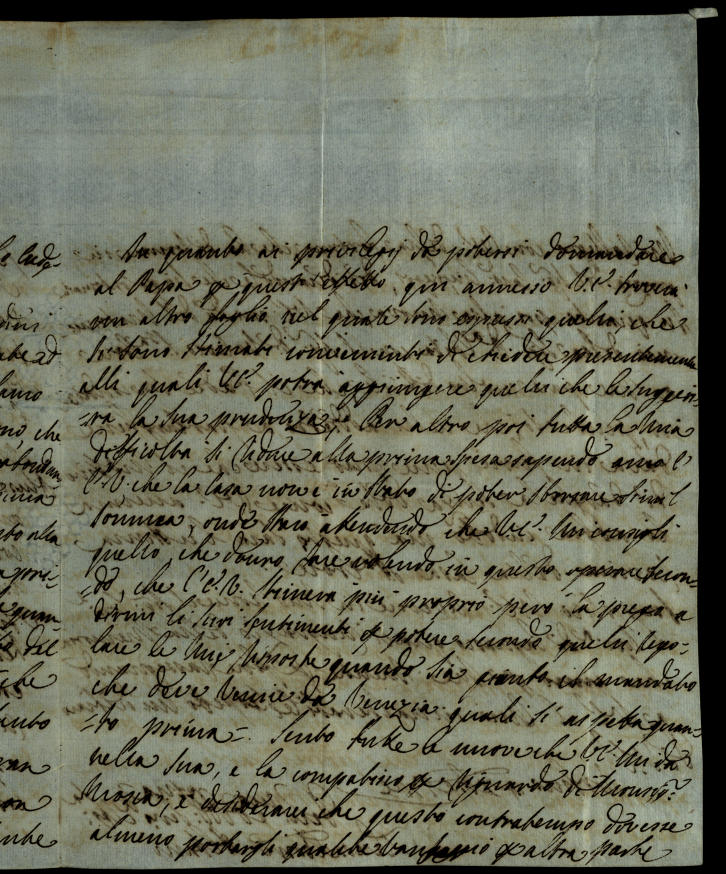 In quanto ai privilegj da potersi domandare
al Papa p questo effetto, qui annesso V.E. troverà
un altro foglio nel quale sono espressi quelli, che
si sono stimati convenienti di chiedere presentemente
alli quali V.E. potrà aggiungere quelli che le suggeri-
=rà la sua prudenza; Per altro poi tutta la mia
difficoltà si riduce alla prima spesa sapendo anco l'
E.V. che la Casa non è in stato di poter sborsare simil
somma, onde starò attendendo che V.E. mi consigli
quello, che dovrò fare volendo in questo operare secon-
=do, che l'E.V. stimerà più proprio però la prego a
dirmi li suoi sentimenti p potere secondo quelli rego-
lare le mie risposte quando sia giunto il mandato
che deve venire da Venezia quali si aspetta quan-
=to prima=. Sento tutte le nuove che V.E. mi dà
nella sua, e la compatisco p riguardo di Monsig.
Mosca, e desidererei che questo contratempo dovesse
almeno portargli qualche vantaggio p altra parte